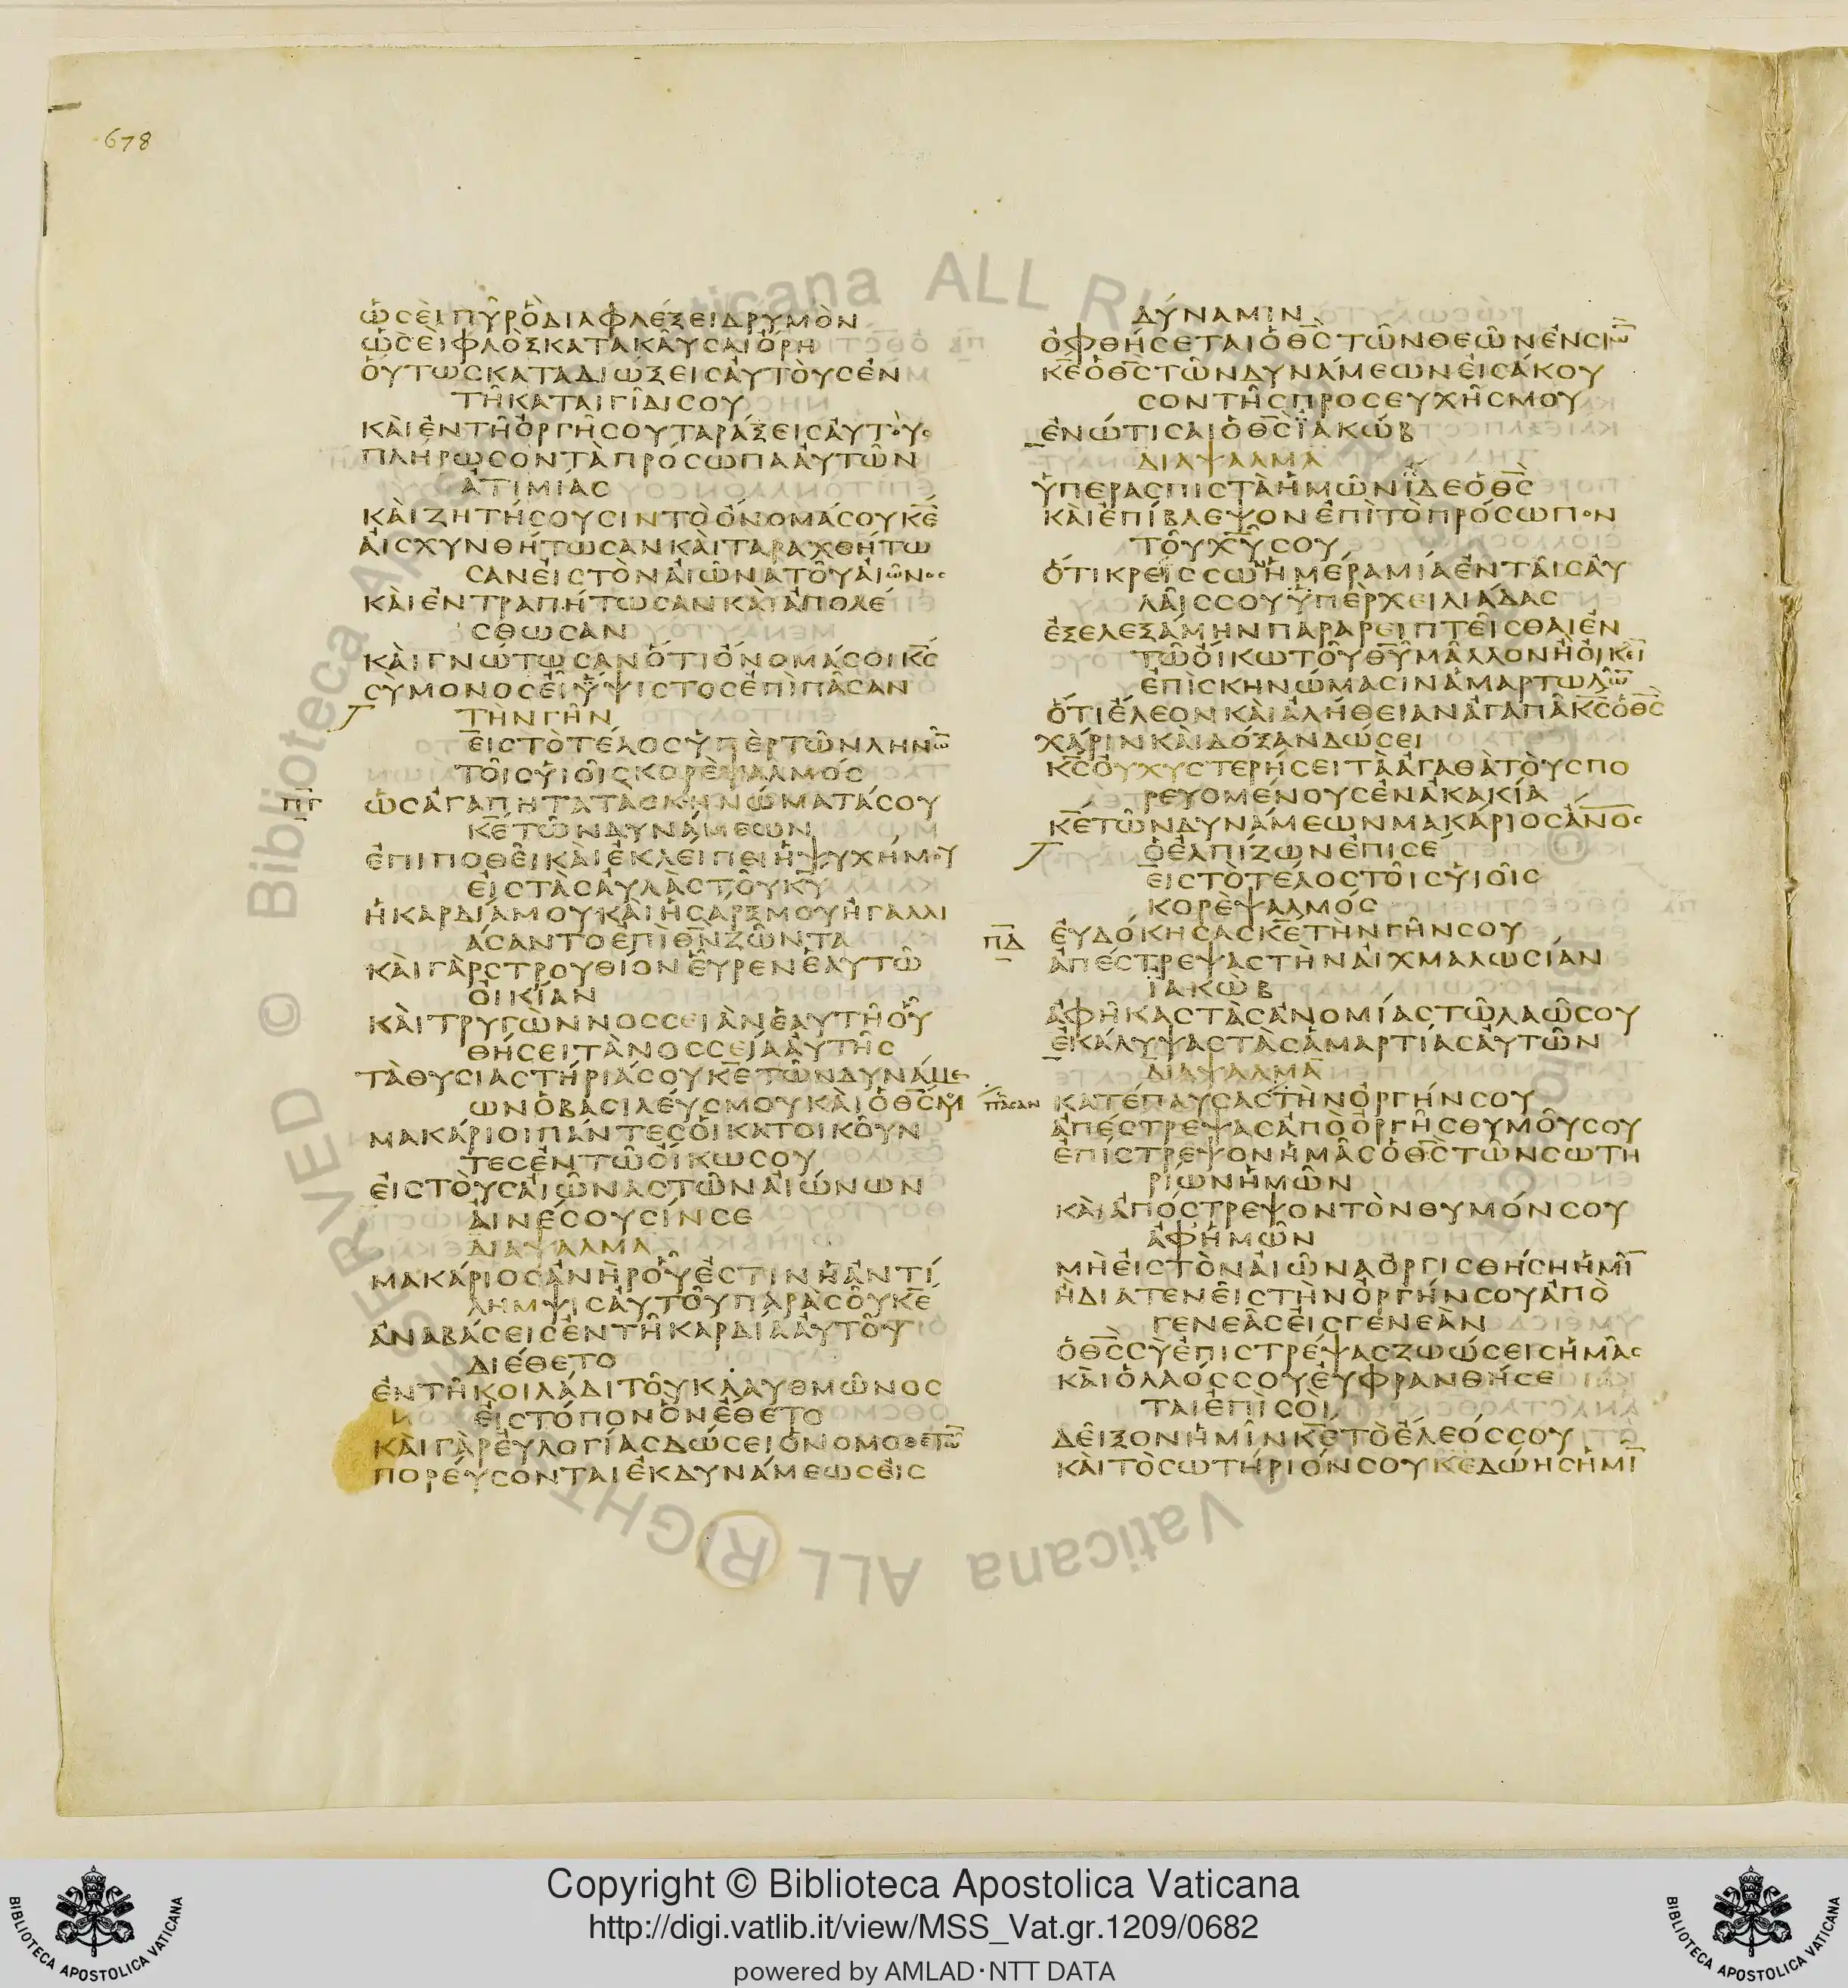 678
ὡσεὶπῦρὃδιαφλέξειδρυμὸν
ὡσεὶφλὸξκατακαῦσαιὄρη
ὅυτωςκαταδιώξεισἀυτὸυσἐν
τῆκαταιγίδισου
κὰιἐντῆὀργῆσουταράξεισἀυτόυσ
πλήρωσοντὰπρόσωπαἀυτῶν
ἀτιμίασ
κὰιζητήσουσιντὸὄνομάσουκ̅ε̅
ἀισχυνθήτωσανκὰιταραχθήτω
σανἐιστὸναἰῶνατοῦαἰῶνοσ
κὰιἐντραπήτωσανκὰιἀπολέ
σθωσαν
κὰιγνώτωσανὅτιὄνομάσοικ̅σ̅
σὺμονοσεἶὕψιστοσἐπὶπᾶσαν
τὴνγῆν
ἐιστὸτέλοσὑπὲρτῶνληνῶ̅
τοῖσὑιοῖσκορὲψαλμόσ
π̅γ̅
ὡσἀγαπητατὰσκηνώματάσου
κ̅ε̅τῶνδυνάμεων
ἐπιποθεῖκὰιἐκλείπειἡψυχήμου
ἐιστὰσἀυλὰστοῦκ̅υ̅
ἡκαρδίαμουκὰιἡσάρξμουἠγαλλι
άσαντοἐπὶθ̅ν̅ζῶντα
κὰιγὰρστρουθίονεὗρενἑαυτῶ
ὀικίαν
κὰιτρυγὼννοσσειὰνἑαυτῆοὗ
θήσειτὰνοσσειάἀυτῆσ
τὰθυσιαστήριάσουκ̅ε̅τῶνδυνάμε
ωνὁβασιλέυσμουκὰιὁθ̅σ̅μου
μακάριοιπάντεσὁικατοικοῦν
τεσἐντῶὄικωσου
ἐιστὸυσαἰῶναστῶναἰώνων
ἀινέσουσίνσε
διαψαλμα
μακάριοσἀνὴροὗἐστινἡἀντί
λημψισἀυτοῦπαρὰσοῦκ̅ε̅
ἀναβάσεισἐντῆκαρδίαἀυτοῦ
διέθετο
ἐντῆκοιλάδιτοῦκλαυθμῶνοσ
ἐιστόπονὃνἔθετο
κὰιγὰρἐυλογίασδώσειὁνομοθετῶ̅
πορέυσονταιἐκδυνάμεωσἐισ
δύναμιν
ὀφθήσεταιὁθ̅σ̅τῶνθεῶνἐνσιὼ̅
κ̅ε̅ὁθ̅σ̅τῶνδυνάμεωνἐισάκου
σοντῆσπροσευχῆσμου
ἐνώτισαιὁθ̅σ̅ϊακώβ
διαψαλμα
ὑπερασπιστὰἡμῶνϊδεὁθ̅σ̅
κὰιἐπίβλεψονἐπὶτὸπρόσωπον
τοῦχ̅υ̅σου
ὅτικρείσσωνἡμέραμίαἐνταῖσἀυ
λαῖσσουϋπὲρχειλιάδασ
ἐξελεξάμηνπαραρειπτεῖσθαιἐν
τῶὄικωτοῦθ̅υ̅μᾶλλονἢὀικεῖ̅
ἐπὶσκηνώμασινἁμαρτωλῶ̅
ὅτιἔλεονκὰιἀλήθειανἀγαπᾶκ̅σ̅ὁθ̅σ̅
χάρινκὰιδόξανδώσει
κ̅σ̅ὀυχυστερήσειτὰἀγαθὰτὸυσπο
ρευομένουσἐνἀκακία
κ̅ε̅τῶνδυνάμεωνμακάριοσἀ̅ν̅ο̅σ
ὁἐλπίζωνἐπὶσέ
ἐιστὸτέλοστοῖσὑιοῖσ
κορὲψαλμόσ
π̅δ̅
ἐυδόκησασκ̅ε̅τὴνγῆνσου
ἀπέστρεψαστὴναἰχμαλωσίαν
ϊακὼβ
ἀφῆκαστὰσἀνομίαστῶλαῶσου
ἐκάλυψαστὰσἁμαρτίασἀυτῶν
διαψαλμα
πᾶσαν
κατέπαυσαστὴνὀργήνσου
ἀπέστρεψασἀπὸὀργῆσθυμοῦσου
ἐπίστρεψονἡμᾶσὁθ̅σ̅τῶνσωτη
ρίωνἡμῶν
κὰιἀπόστρεψοντὸνθυμόνσου
ἀφἡμῶν
μὴἐιστὸναἰῶναὀργισθήσηἡμῖ̅
ἢδιατενεῖστὴνὀργήνσουἀπὸ
γενεᾶσἐισγενεὰν
ὁθ̅σ̅σὺἐπιστρέψασζωώσεισἡμᾶσ
κὰιὁλαόσσουἐυφρανθήσε
ταιἐπὶσοὶ
δεῖξονἡμῖνκ̅ε̅τὸἔλεόσσου
κὰιτὸσωτήριόνσουκ̅ε̅δώησἡμῖ̅
© Biblioteca Apostolica Vaticana ALL RIGHTS RESERVED
Copyright © Biblioteca Apostolica Vaticana
http://digi.vatlib.it/view/MSS_Vat.gr.1209/0682
powered by AMLAD·NTT DATA
BIBLIOTECA APOSTOLICA VATICANA
BIBLIOTECA APOSTOLICA VATICANA